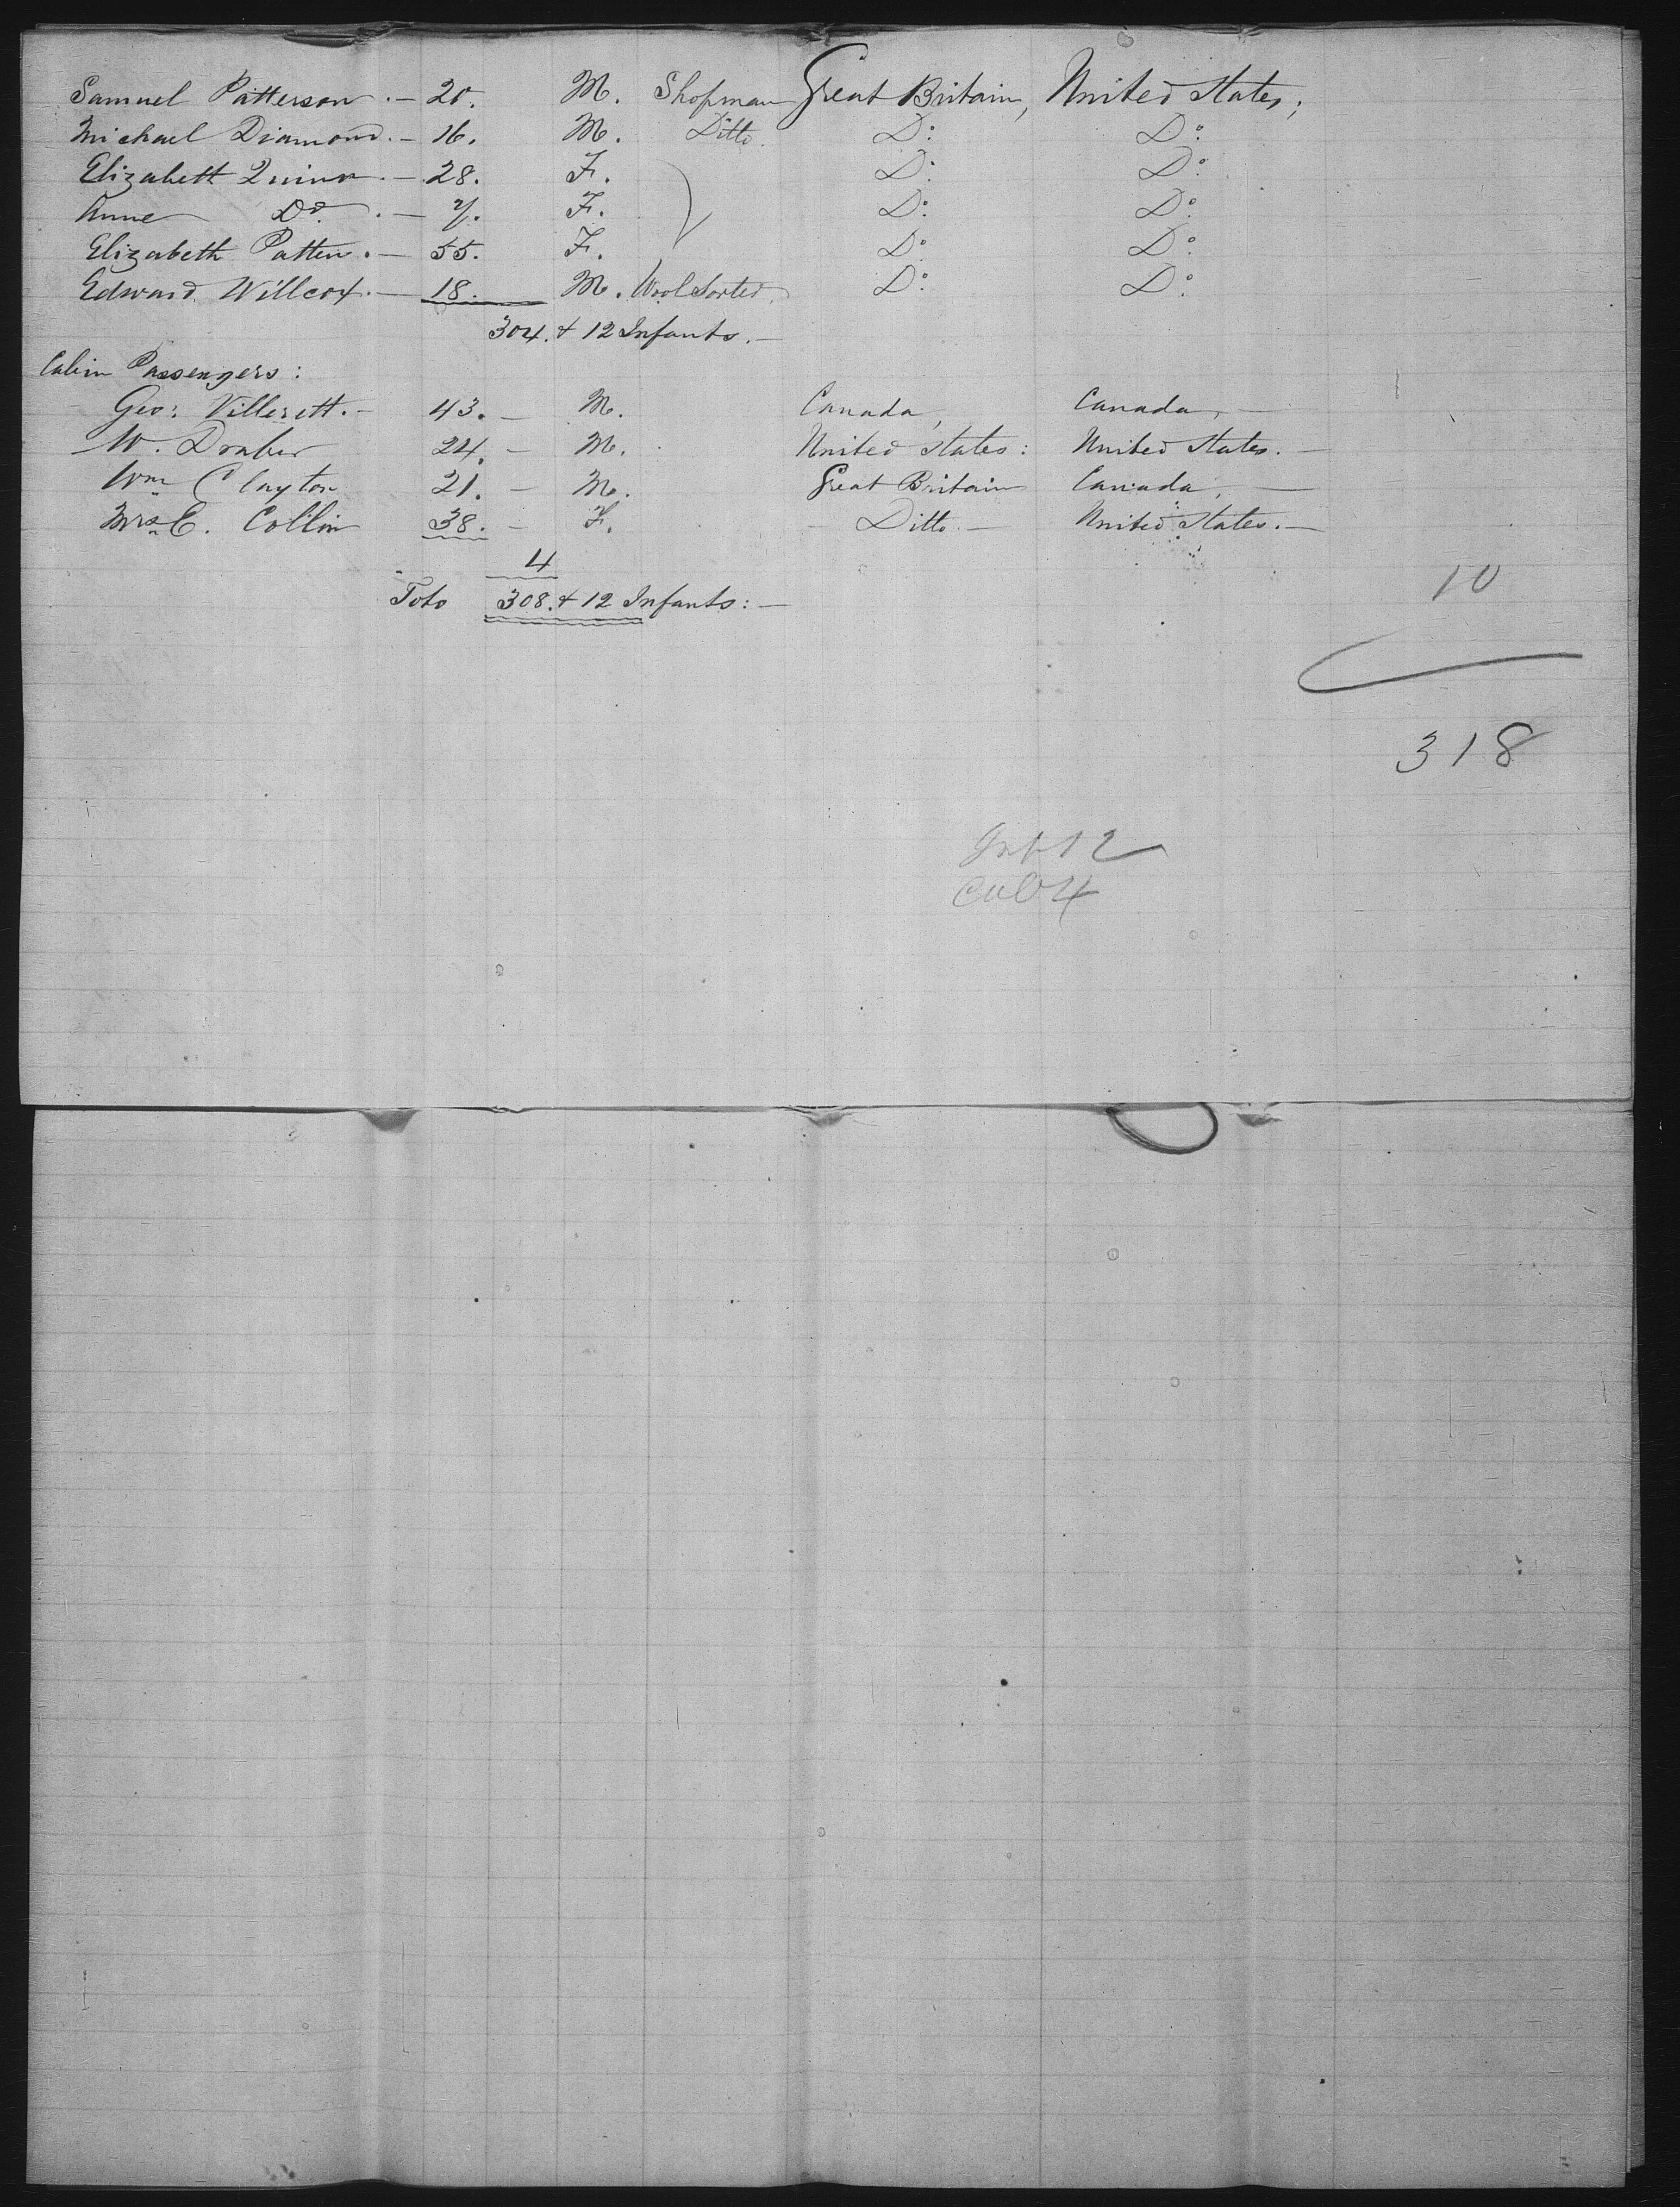 Samuel Patterson . — 20. M. Shopman Great Britain, United States;
Michael Diamond. — 16. M. Ditto. Do: Do:
Elizabeth Quinn . — 28. F. Do: Do:
Anne Do. . — 7. F. Do: Do:
Elizabeth Patten . — 55. F. Do: Do:
Edward Willcox. — 18. M. Wool Sorter. Do: Do:
304. & 12 Infants. —
Cabin Passengers:
Geo: Villerett. — 43. — M. Canada, Canada, —
W. 24. — M. United States: United States. —
Wm Clayton 21. — M. Great Britain Canada, —
Mrs E. Collin 38. — F. Ditto — United States. —
4
Toto 308. & 12 Infants: —
10
318
Inf 12
Cab 4